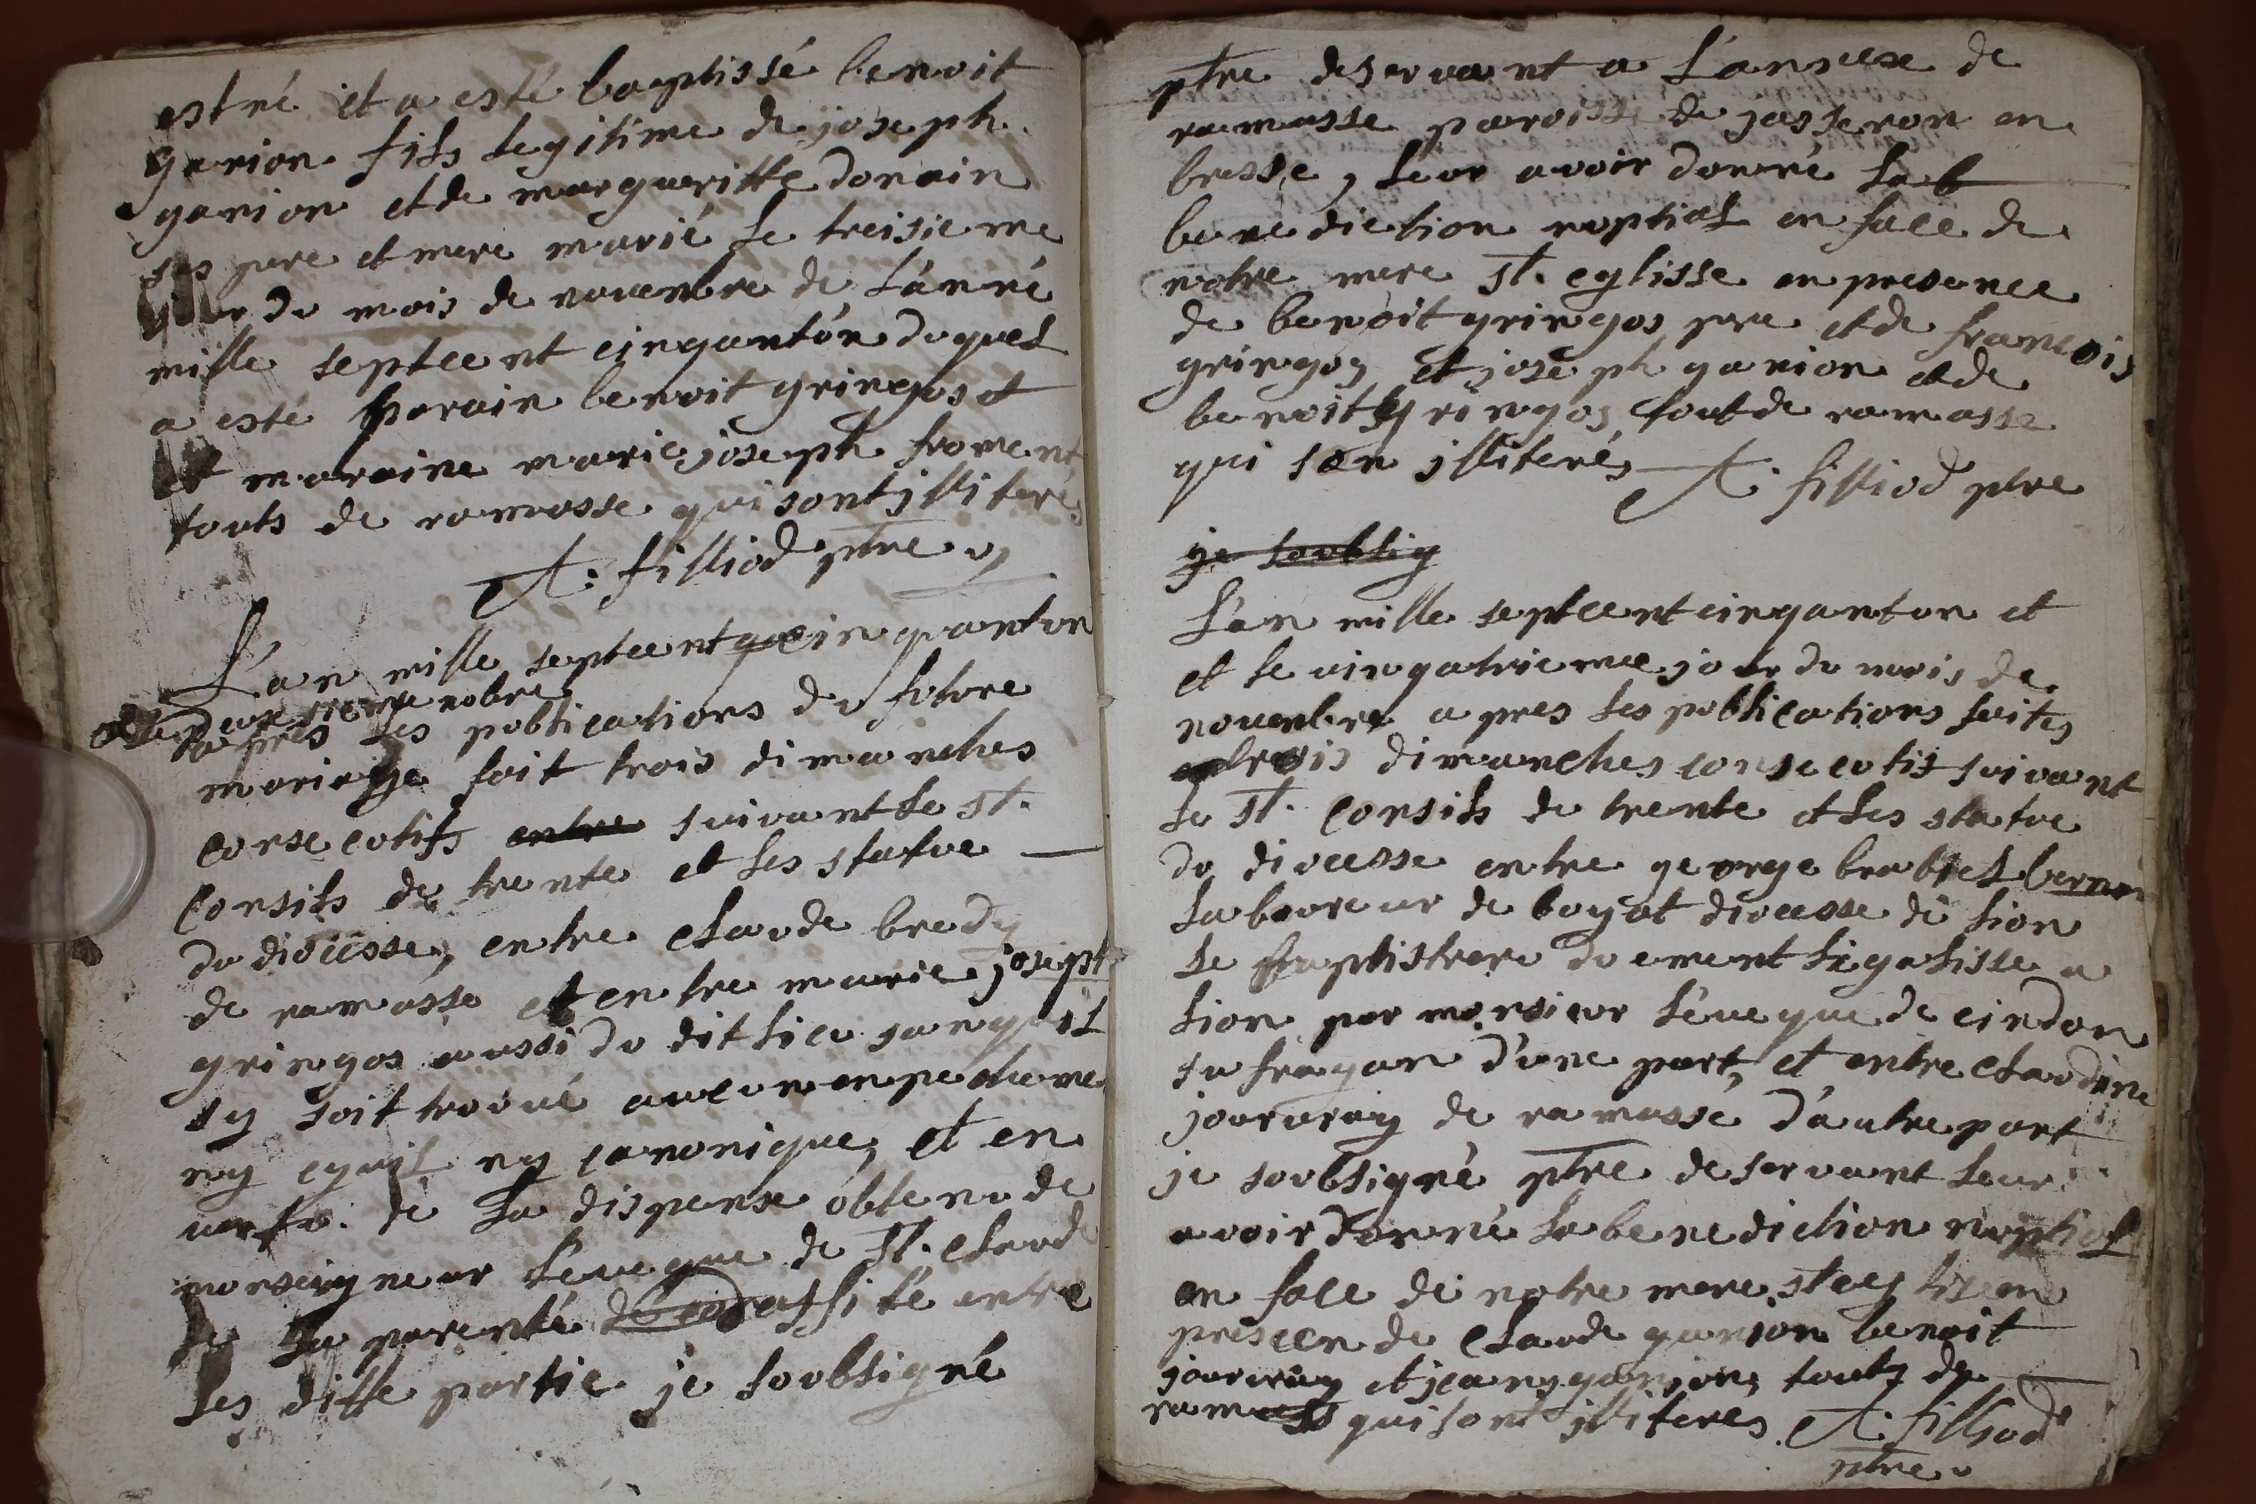 est né et a esté baptissé benoit
ganion fils legitime de joseph
ganion et de margueritte donain
ses pere et mere marié le treisieme
jour du mois de novembre de l'anné
mille septcent cinqantón duquel
a esté parain benoit gringos et
et maraine marie joseph froment
touts de ramasse qui sont illiteré
A. filliod ptre
L'an mille septcent cinquantun
et le deux nobre
apres les poblications du foture
mariage fait trois dimanches
consecotifs entre suivant le st.
Consils de trente et les statue
du dioесse, entre claude bredy
de ramasse et entre marie joseph
gringos aussi du dit lieu sanquil
sy soit trouvé aucun enpecheme
ny cyvil ny canonique, et en
vertu de la dispense obtenu de
monseigneur l'eveque de st. claude
de la parenté daffité entre
les ditte partie je soubsigné
ptre deservant a l'annexe de
ramasse paroisse de jasseron en
bresse, leur avoir donné la b
benediction noptial en face de
notre mere st. eglisse en presence
de benoit gringos pere et de francois
gringos et joseph ganion et de
benoit gringos tout de ramasse
qui son illiterés A. filliod ptre
je soublig
L'an mille septcent cinqanton et
et le vingatrieme jour du mois de
novembre apres les poblications faites
trois dimanches consecotifs suivant
le st. Consils de trente et les statue
du diocesse entre george brabiel
laboureur de boyat diocesse de lion
le baptistrere duement ligalisse a
lion par monsieur l'eveque de cindon
sufragan d'une part, et entre claudine
jourvray de ramassé d'autre part
je soubsigné ptre deservant leur
avoir donné la benediction nuptial
en face de notre mere st eglize en
prescen de claude ganion benoit
jourvray et jean ganion, touts de
ramass qui sont illiteres A. filliod
ptre